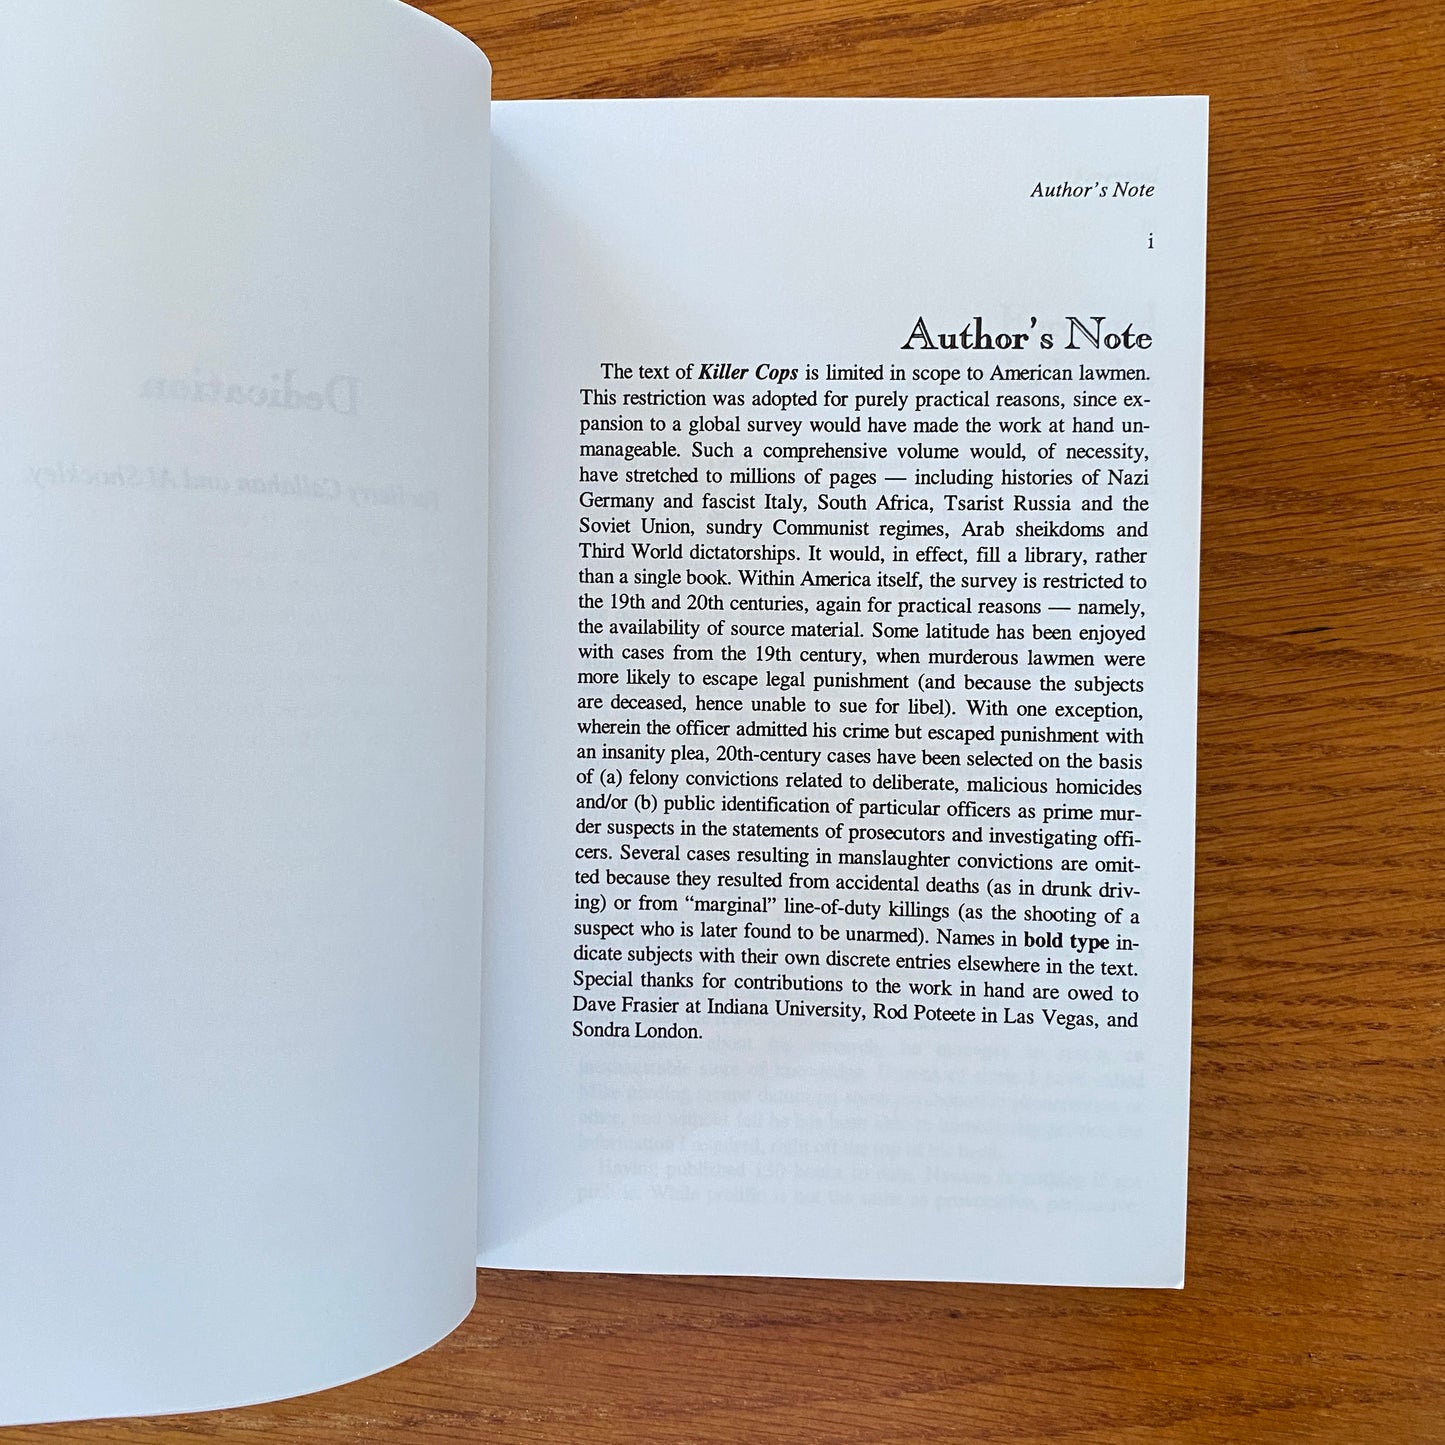 Dedication
For Harry Callahan and Al Shockley.
Author's Note
i
Author's Note
The text of Killer Cops is limited in scope to American lawmen.
This restriction was adopted for purely practical reasons, since ex-
pansion to a global survey would have made the work at hand un-
manageable. Such a comprehensive volume would, of necessity,
have stretched to millions of pages — including histories of Nazi
Germany and fascist Italy, South Africa, Tsarist Russia and the
Soviet Union, sundry Communist regimes, Arab sheikdoms and
Third World dictatorships. It would, in effect, fill a library, rather
than a single book. Within America itself, the survey is restricted to
the 19th and 20th centuries, again for practical reasons — namely,
the availability of source material. Some latitude has been enjoyed
with cases from the 19th century, when murderous lawmen were
more likely to escape legal punishment (and because the subjects
are deceased, hence unable to sue for libel). With one exception,
wherein the officer admitted his crime but escaped punishment with
an insanity plea, 20th-century cases have been selected on the basis
of (a) felony convictions related to deliberate, malicious homicides
and/or (b) public identification of particular officers as prime mur-
der suspects in the statements of prosecutors and investigating offi-
cers. Several cases resulting in manslaughter convictions are omit-
ted because they resulted from accidental deaths (as in drunk driv-
ing) or from “marginal” line-of-duty killings (as the shooting of a
suspect who is later found to be unarmed). Names in bold type in-
dicate subjects with their own discrete entries elsewhere in the text.
Special thanks for contributions to the work in hand are owed to
Dave Frasier at Indiana University, Rod Poteete in Las Vegas, and
Sondra London.